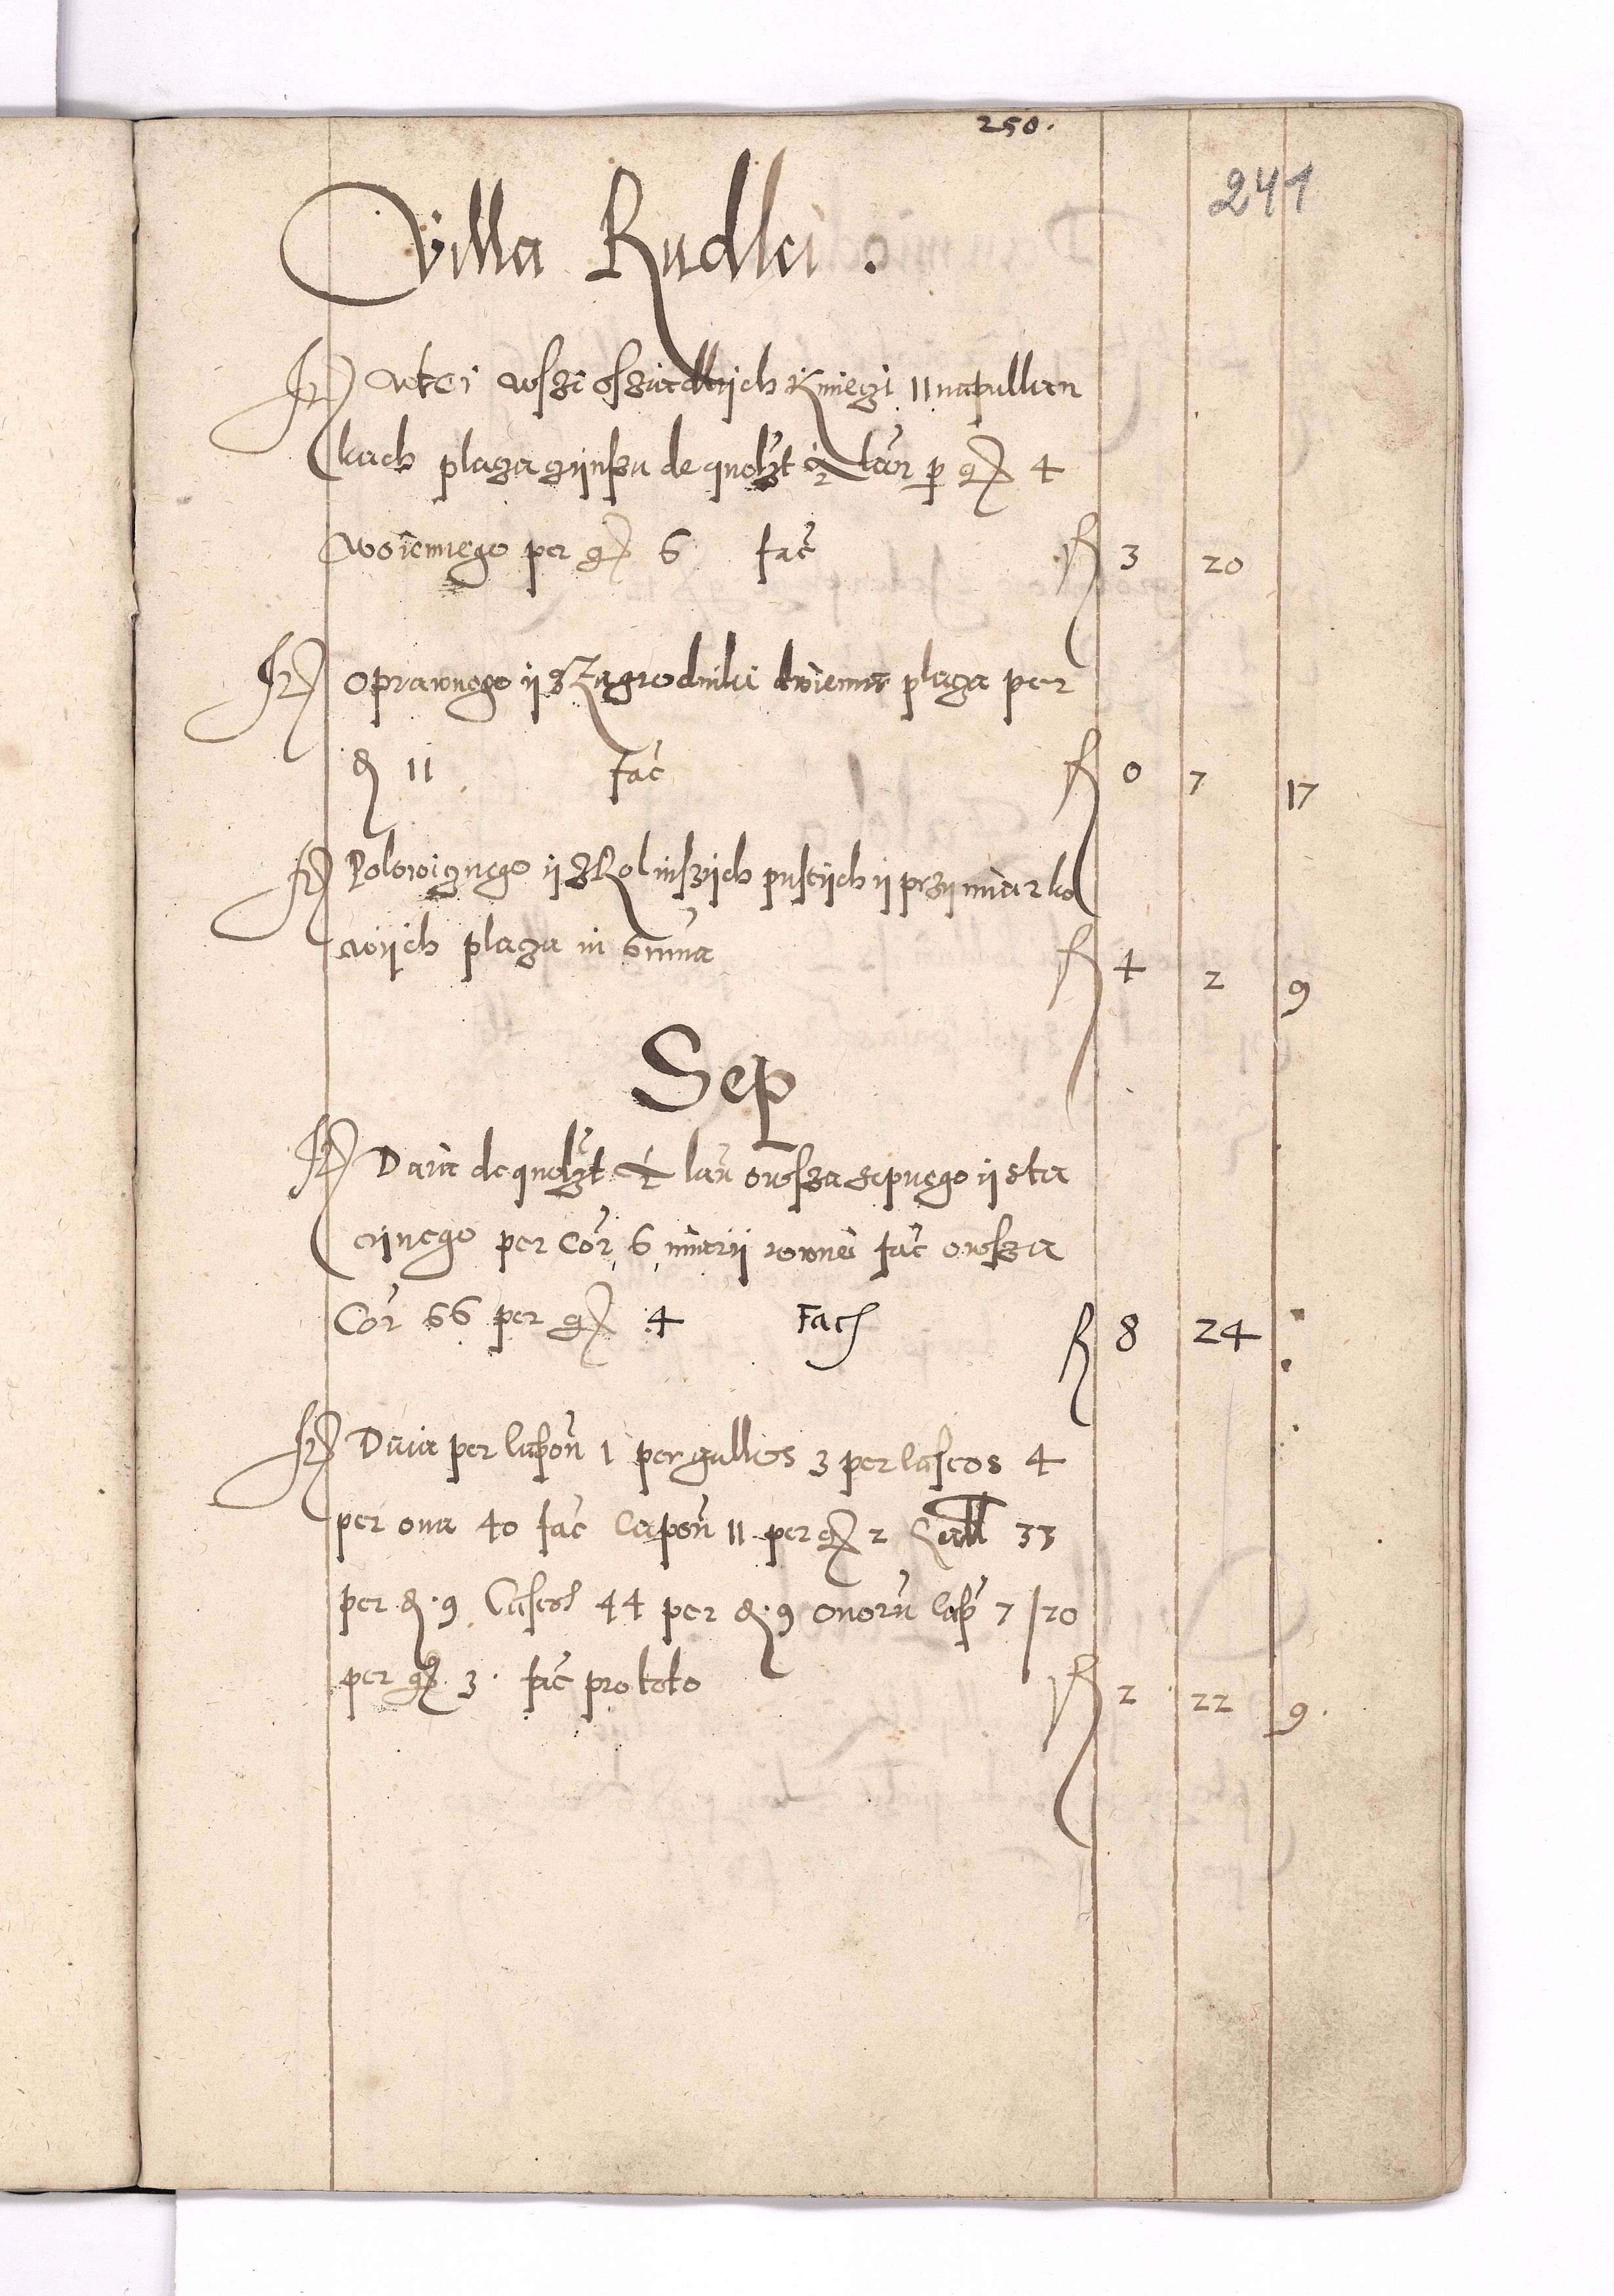 250.
241
Villa Rudki .
It wtei wszi osziadlijch Kmiezi 11 napullan
kach plaza czijnszu de quolzt ½ lan̄ p gr 4
woiennego per gr 6 fac̄ fl 3 20
It oprawnego ij z Zagrodniki dwiema plaza per
d 11 fac̄ fl 0 7 17
It Polowicznego ij z Rol inszijch pustijch ij przijmiarko
wijch plaza in sum̄a fl 4 2 9
Sep
It Daia de quolzt ½ lan̄ owsza sepnego ij sta
cijnego per Cor̄ 6 miarij rownei fac̄ owsza
Cor̄ 66 per gr 4 Fac fl 8 24
It Daia per capon̄ 1 per gallos 3 per caseos 4
per oua 40 fac̄ capon̄ 11 per gr 2 Gall 33
per d. 9 Caseos 44 per d. 9 ouorū cap̄ 7 /20
per gr 3 . fac̄ pro toto fl 2 22 9.